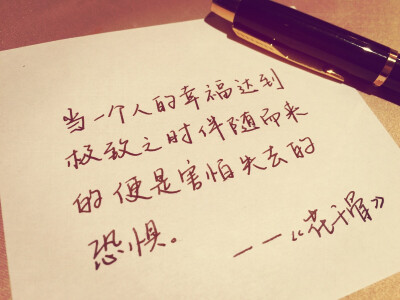 当一个人的幸福达到
极致之时伴随而来
的便是害怕失去的
恐惧。 ——《花千骨》